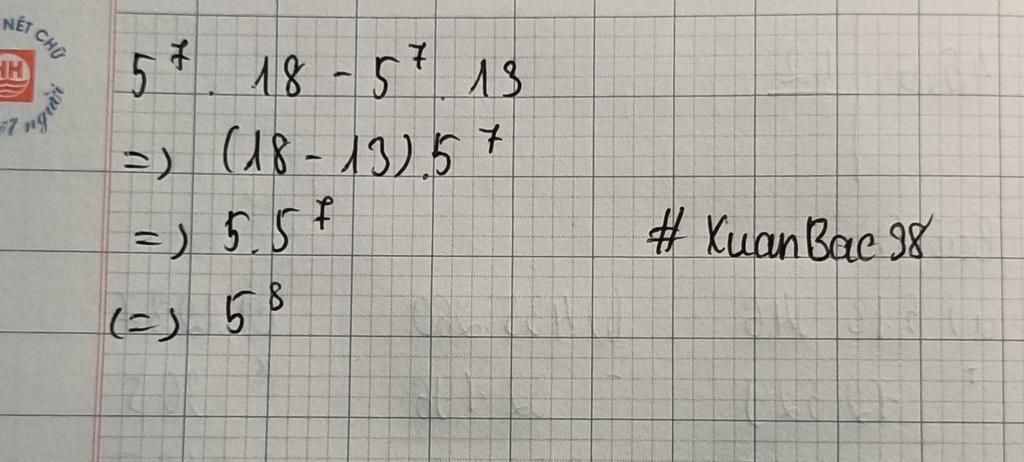 NÉT CHỮ
HH
nết người
5⁷. 18 - 5⁷. 13
=> (18 - 13).5⁷
=> 5.5⁷
# XuanBac98
(=) 5⁸